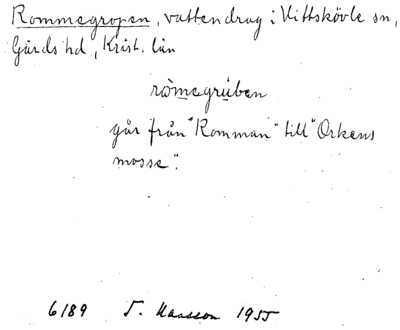 Rommegropen, vattendrag i Vittskövle sn,
Gärds hd, Krist. län
römegrüben
går från "Romman" till "Orkens
mosse".
6189 T. Hansson 1955